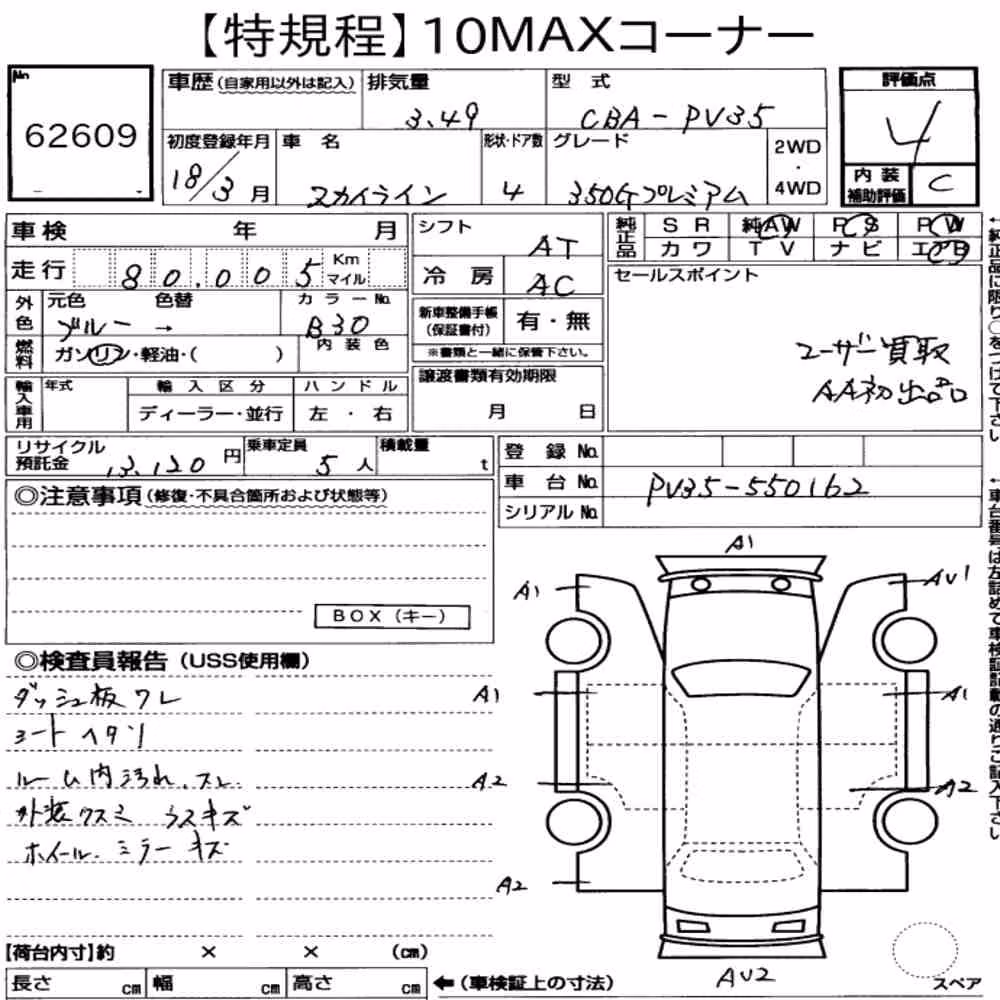 【特規程】10MAXコーナー
No
62609
車歴(自家用以外は記入)
排気量
3.49
型式
CBA-PV35
評価点
4
初度登録年月
18/3月
車名
スカイライン
形状・ドア数
4
グレード
350Gプレミアム
2WD
・
4WD
内装
補助評価
C
車検 年 月
シフト
AT
純正品
SR 純AW PS PW
カワ TV ナビ エアB
走行
80.005
Km
マイル
冷房
AC
セールスポイント
ユーザー買取
AA初出品
外色
元色 色替
ブルー →
カラーNo.
B30
新車整備手帳
(保証書付)
有・無
※書類と一緒に保管下さい。
燃料
ガソリン・軽油・( )
内装色
輸入車用
年式
輸入区分
ディーラー・並行
ハンドル
左・右
譲渡書類有効期限
月 日
リサイクル
預託金
13,120円
乗車定員
5人
積載量
t
登録No.
車台No.
PV35-550162
シリアルNo.
◎注意事項(修復・不具合箇所および状態等)
BOX(キー)
◎検査員報告(USS使用欄)
ダッシュ板ワレ
シートヘタリ
ルーム内汚れ、スレ
外装クスミ ウスキズ
ホイール、ミラーキズ
A1
A1
AU1
A1
A1
A2
A2
A2
AU2
【荷台内寸】約 × × (cm)
長さ cm 幅 cm 高さ cm
←(車検証上の寸法)
スペア
←純正品に限り○をつけて下さい
←車台番号は左詰めで車検証記載の通りご記入下さい